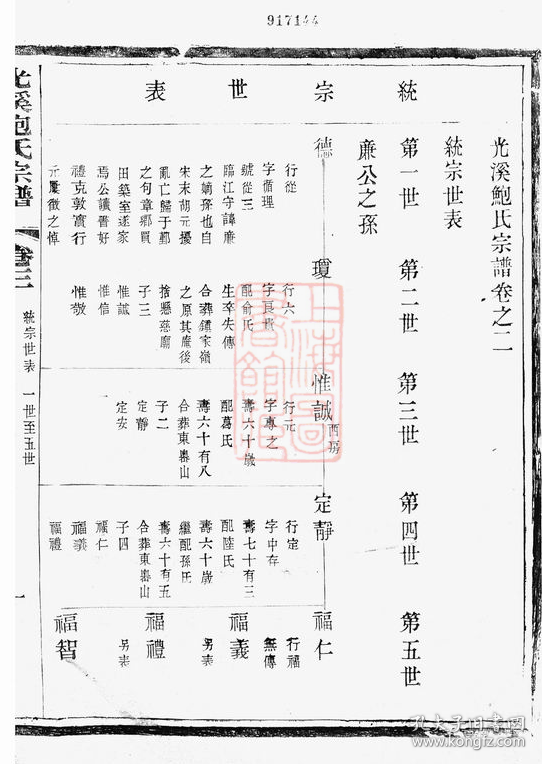 917144
光溪鮑氏宗譜卷之二
統宗世表
統宗世表
第一世 第二世 第三世 第四世 第五世
廉公之孫
德
行從
字循理
號從三
臨江守諱廉
之嫡孫也自
宋末胡元擾
亂亡歸于鄞
之句章鄉買
田築室遂家
焉公讜晋好
禮克敦實行
瓊
行六
配俞氏
生卒失傳
合葬鍾家嶺
之原其廉後
捨懸慈廟
子三
惟誠
惟信
惟敬
惟誠
行元
字專之
壽六十歲
配葛氏
壽六十有八
合葬東嶴山
子二
定靜
定安
定靜
行定
字中存
壽七十有三
配陸氏
壽六十歲
繼配孫氏
壽六十有五
合葬東嶴山
子四
福仁
福義
福禮
福仁
行福
無傳
福義
另表
福禮
另表
福智
光溪鮑氏宗譜
卷二
統宗世表
一世至五世
一
上海圖書館藏
孔夫子旧书网
www.kongfz.com